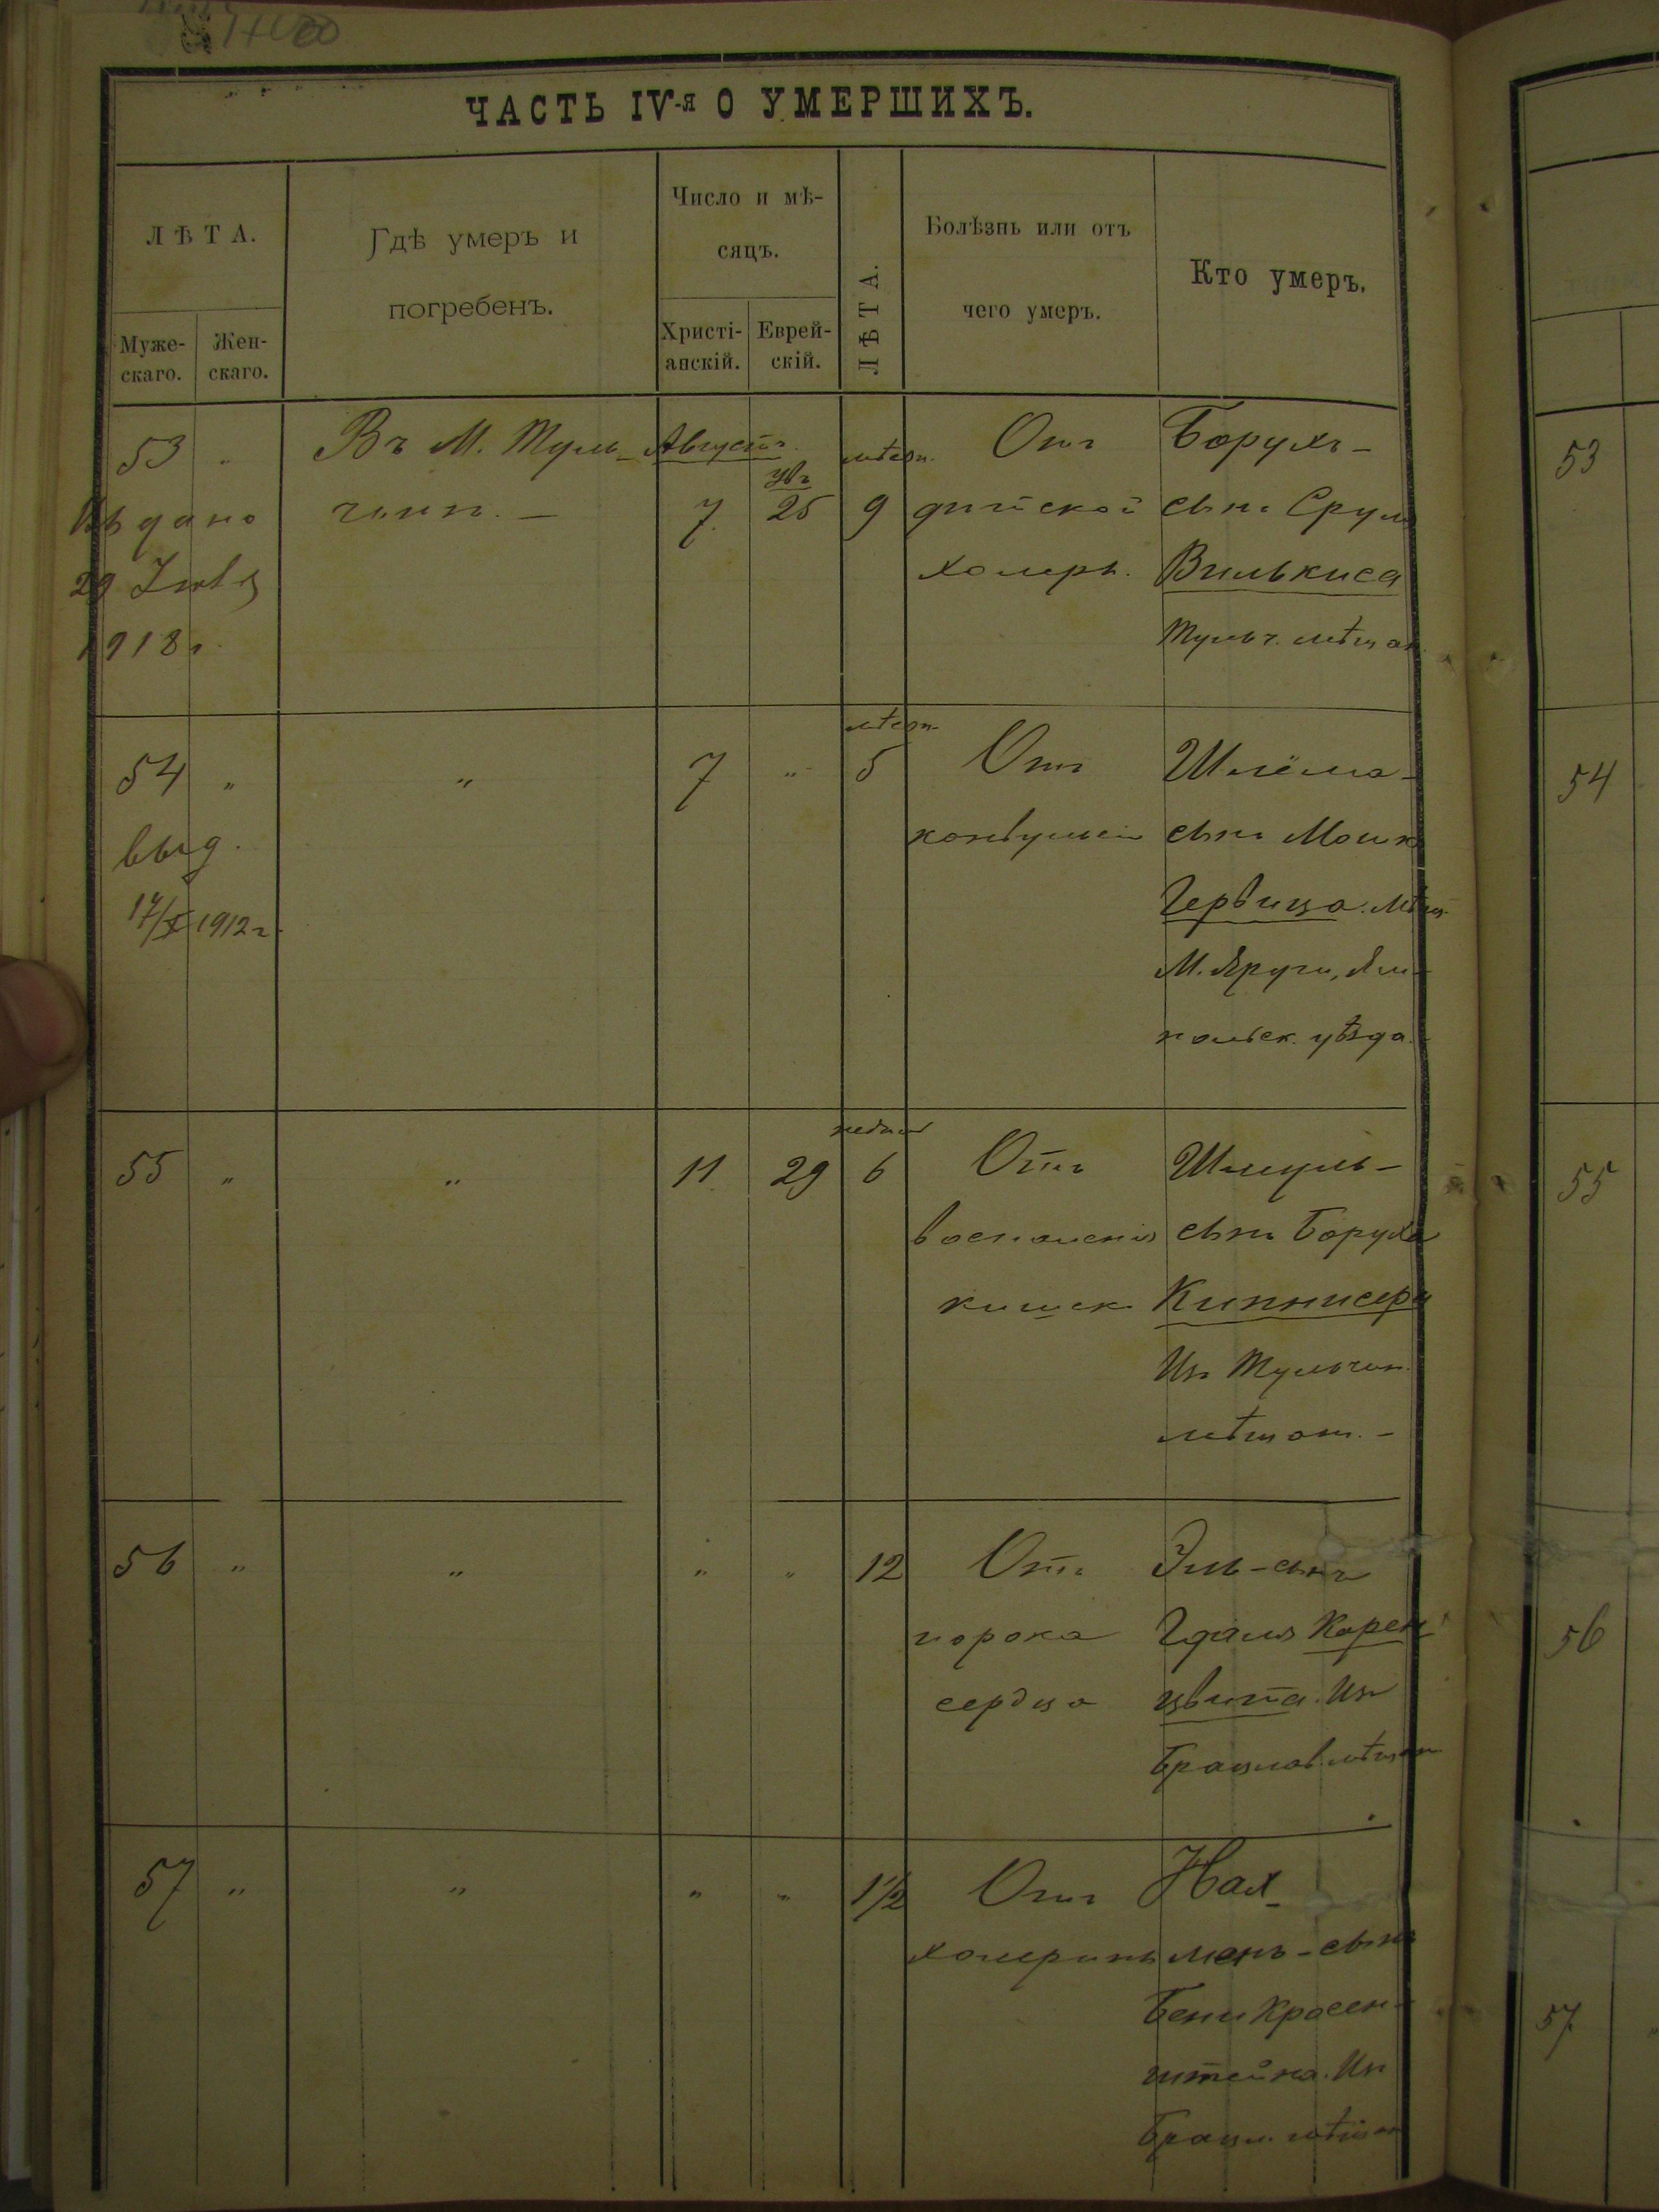 ЧАСТЬ IV-я О УМЕРШИХЪ.
ЛѢТА.
Муже-
скаго.
Жен-
скаго.
Гдѣ умеръ и
погребенъ.
Число и мѣ-
сяцъ.
Христі-
анскій.
Еврей-
скій.
ЛѢТА.
Болѣзнь или отъ
чего умеръ.
Кто умеръ.
53 „
Выдано
29
1918 г.
Въ М. Туль-
чинѣ. —
Августъ
7.
25
мѣсяц.
9
Отъ
дѣтской
холеры.
Борухъ —
сынъ Сруля
Вилькиса
Тульч. мѣщан.
54 „
выд.
17/X 1912 г.
„
7
„
мѣсяц.
5
Отъ
конвульсій
Шлёма —
сынъ Мошка
Гервица. Мѣщ.
М. Яруги, Ям-
польск. уѣзда.
55 „
„
11
29
недѣль
6
Отъ
воспаленія
кишекъ
Шмуль —
сынъ Боруха
Кипнисера
Изъ Тульчин.
мѣщан. —
56 „
„
„
„
12
Отъ
порока
сердца
Эль — сынъ
Гдаля Корен
цвита. Изъ
Брацлав. мѣщан
57 „
„
„
„
1½
Отъ
холерины
Нах-
менъ — сынъ
Бени Красен-
штейна. Изъ
Брацл. мѣщан
53
54
55
56
57